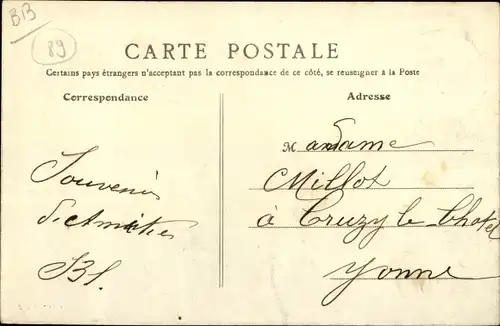 BB
89
CARTE POSTALE
Certains pays étrangers n'acceptant pas la correspondance de ce côté, se renseigner à la Poste
Correspondance
Adresse
Souvenir
d'Amitiés
Madame
Millot
à Cruzy le Chatel
Yonne